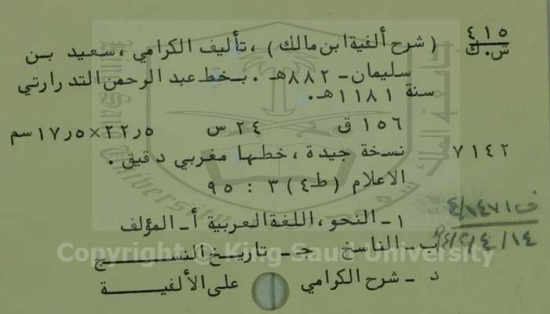 ٤١٥
ش.ك
(شرح ألفية ابن مالك)، تأليف الكرامي، سعيد بن
سليمان - ٨٨٢هـ. بخط عبد الرحمن التدرارتي
سنة ١١٨١هـ.
١٥٦ ق ٢٤ س ٢٢٫٥×١٧٫٥ سم
٧١٤٢
نسخة جيدة، خطها مغربي دقيق.
الاعلام (ط٤) ٣ : ٩٥
١- النحو، اللغة العربية أ- المؤلف
ب- الناسخ ج- تاريخ النسخ
د- شرح الكرامي على الألفية
Copyright © King Saud University